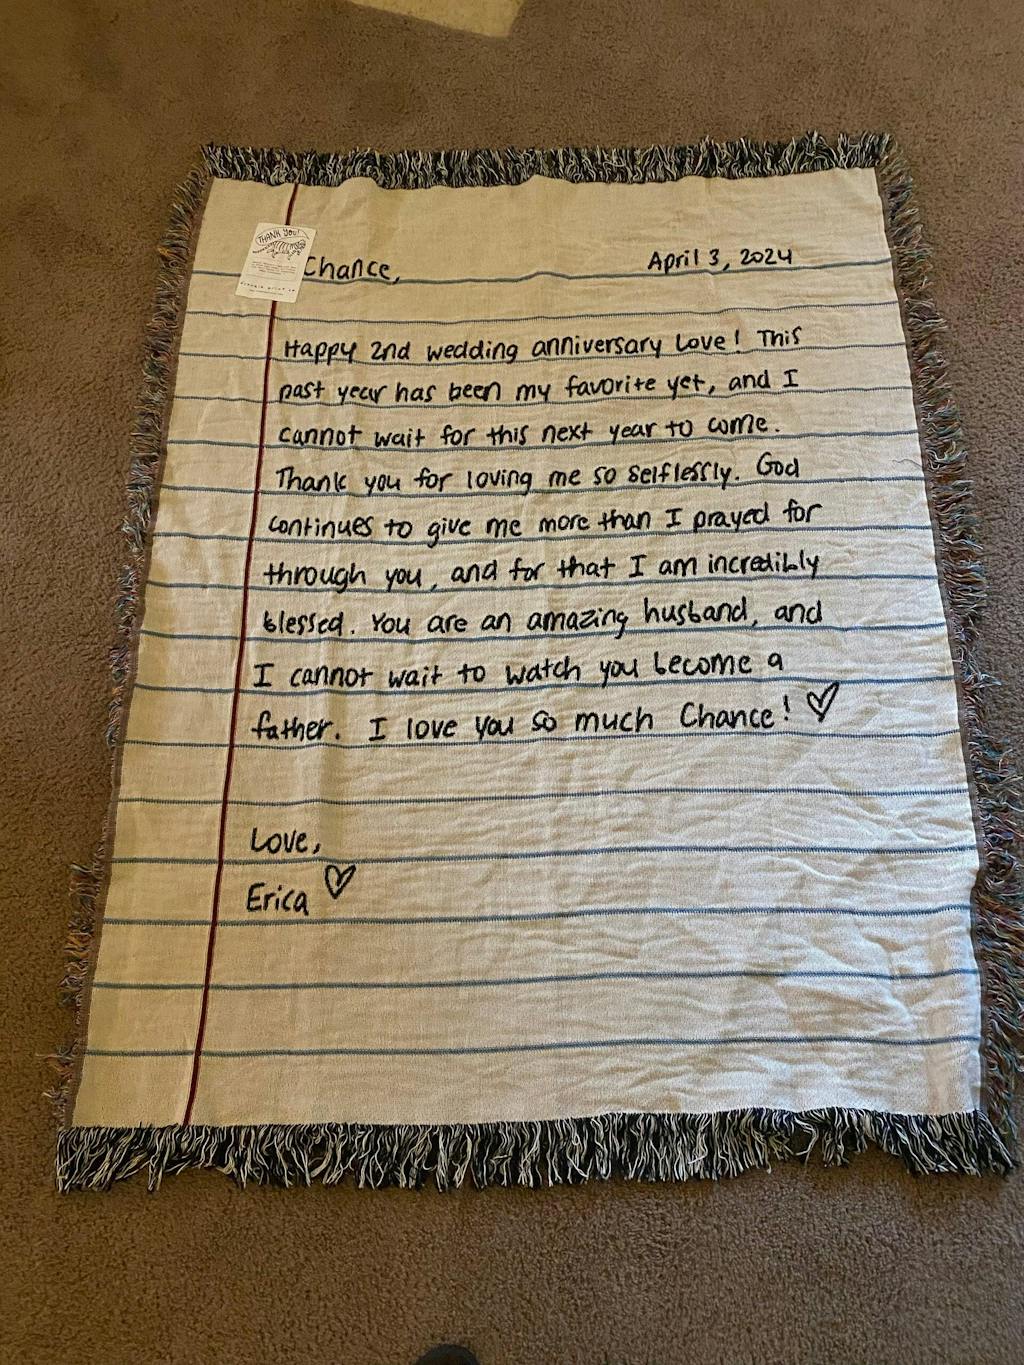 THANK YOU!
Chance,
April 3, 2024
Happy 2nd wedding anniversary Love! This
past year has been my favorite yet, and I
cannot wait for this next year to come.
Thank you for loving me so selflessly. God
continues to give me more than I prayed for
through you, and for that I am incredibly
blessed. You are an amazing husband, and
I cannot wait to watch you become a
father. I love you so much Chance!
Love,
Erica